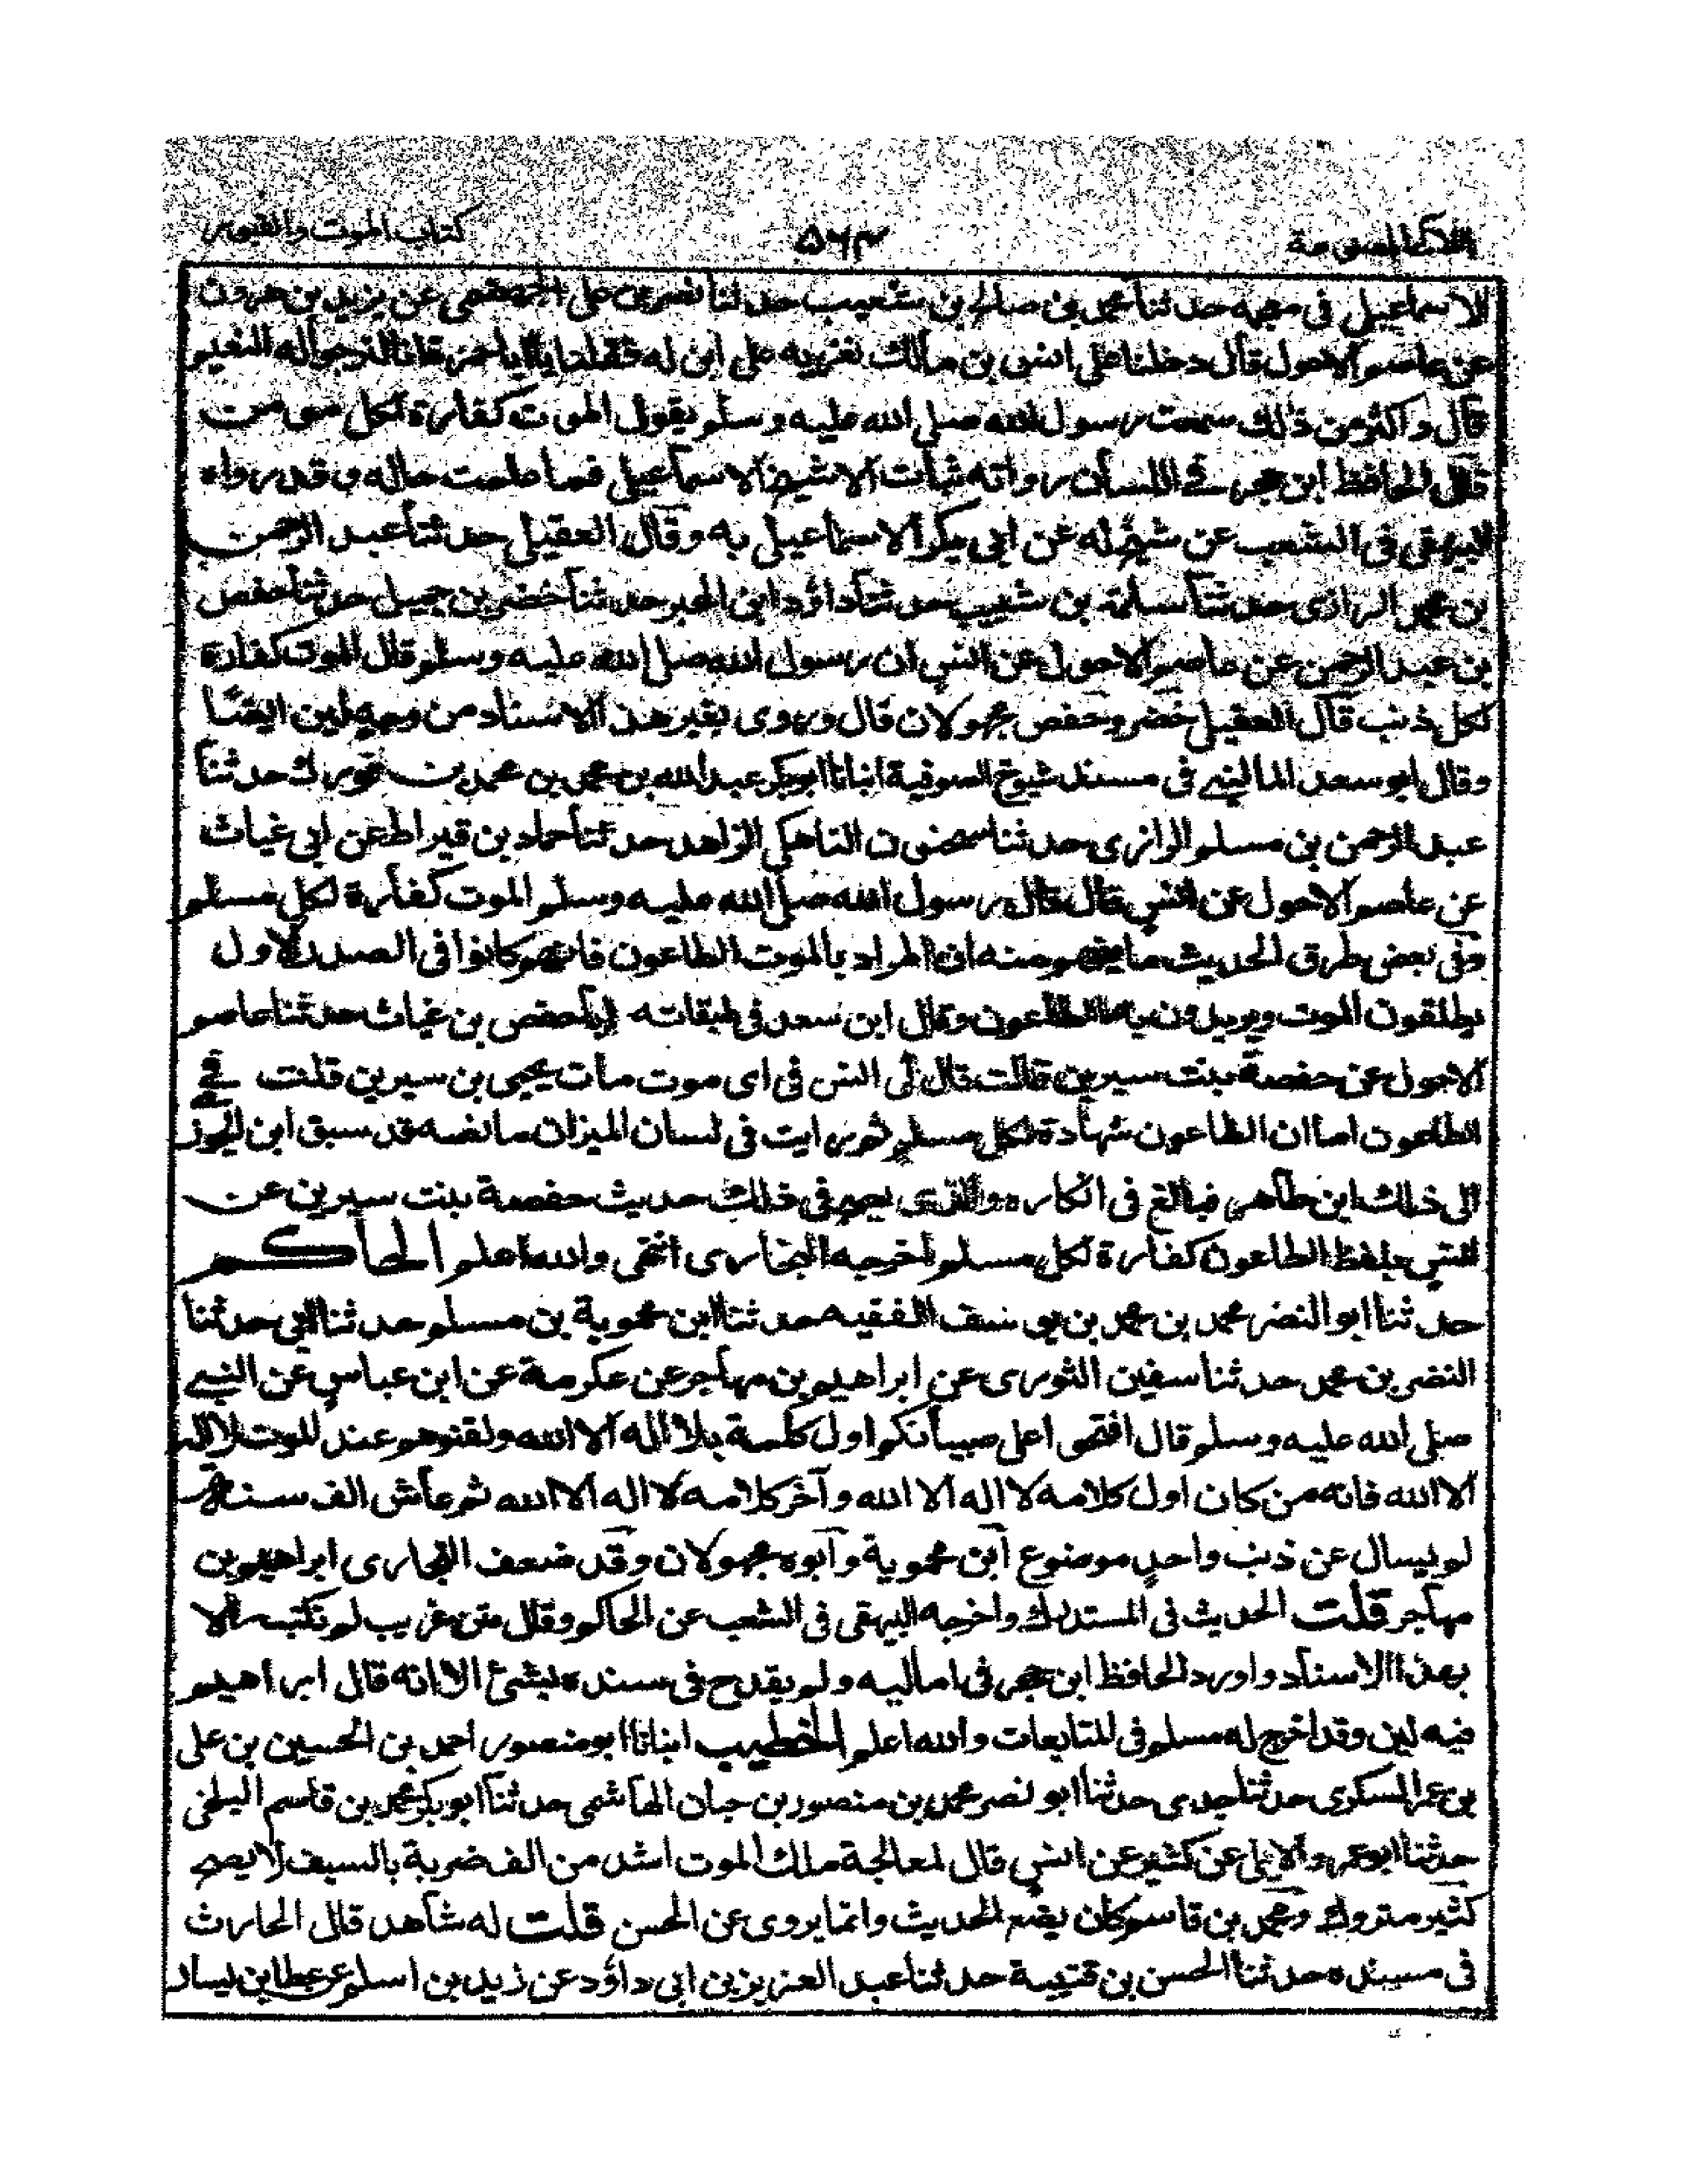 اللآلي المصنوعة ٥٦٣ كتاب الموت والقبور
الاسماعيلي في معجمه حدثنا محمد بن صالح بن شعيب حدثنا نصر بن علي الجهضمي عن يزيد بن هرون
عن عاصم الاحول قال دخلنا على انس بن مالك نعزيه على ابن له فقلنا يا ابا حمزة انا لنرجو له الخير
قال واكثر من ذلك سمعت رسول الله صلى الله عليه وسلم يقول الموت كفارة لكل مومن
قال الحافظ ابن حجر في اللسان رواته ثبات الا شيخ الاسماعيلي فما علمت حاله وقد رواه
البيهقي في الشعب عن شيخ له عن ابي بكر الاسماعيلي به وقال العقيلي حدثنا عبد الرحمن
بن محمد الرازي حدثنا سلمة بن شبيب حدثنا داؤد ابن المحبر حدثنا خضر بن جميل حدثنا حفص
بن عبد الرحمن عن عاصم الاحول عن انس ان رسول الله صلى الله عليه وسلم قال الموت كفارة
لكل ذنب قال العقيلي خضر وحفص مجهولان قال وروى بغير هذا الاسناد من وجه لين ايضًا
وقال ابو سعد الماليني في مسند شيوخ الصوفية انبانا ابوبكر عبد الله بن محمد بن محمد بن فورك حدثنا
عبد الرحمن بن مسلم الرازي حدثنا الزاهد حدثنا حماد بن قيراط عن ابي غياث
عن عاصم الاحول عن انس قال قال رسول الله صلى الله عليه وسلم الموت كفارة لكل مسلم
وفي بعض طرق الحديث ما يفهم منه ان المراد بالموت الطاعون فانهم كانوا في الصدر الاول
يطلقون الموت ويريدون به الطاعون وقال ابن سعد في طبقاته حفص بن غياث حدثنا عاصم
الاحول عن حفصة بنت سيرين قالت قال لي انس في اي موت مات يحيى بن سيرين قلت في
الطاعون اما ان الطاعون شهادة لكل مسلم ثم رايت في لسان الميزان ما نصه قد سبق ابن الجوز
الى ذلك ابن طاهر فبالغ في انكاره والذي يصح في ذلك حديث حفصة بنت سيرين عن
انس بلفظ الطاعون كفارة لكل مسلم اخرجه البخاري انتهى والله اعلم الحاكم
حدثنا ابو النضر محمد بن محمد بن يوسف الفقيه حدثنا ابن محموية بن مسلم حدثنا ابي حدثنا
النضر بن محمد حدثنا سفين الثوري عن ابراهيم بن مهاجر عن عكرمة عن ابن عباس عن النبي
صلى الله عليه وسلم قال افتحوا على صبيانكم اول كلمة بلا اله الا الله ولقنوهم عند الموت لا اله
الا الله فانه من كان اول كلامه لا اله الا الله وآخر كلامه لا اله الا الله ثم عاش الف سنة
لم يسال عن ذنب واحد موضوع ابن محموية وابوه مجهولان وقد ضعف البخاري ابراهيم بن
مهاجر قلت الحديث في المستدرك واخرجه البيهقي في الشعب عن الحاكم وقال متن غريب لم نكتبه الا
بهذا الاسناد واورده الحافظ ابن حجر في اماليه ولم يقدح في سنده بشئ الا انه قال ابراهيم
فيه لين وقد اخرج له مسلم في المتابعات والله اعلم الخطيب انبانا ابو منصور احمد بن الحسين بن علي
بن عمر السكري حدثنا جدي حدثنا ابو نصر محمد بن منصور بن حبان الهاشمي حدثنا ابو بكر محمد بن قاسم البلخي
حدثنا ابو عمرو الابلي عن كثير عن انس قال لمعالجة ملك الموت اشد من الف ضربة بالسيف لا يصح
كثير متروك ومحمد بن قاسم كان يضع الحديث وانما يروى عن الحسن قلت له شاهد قال الحارث
في مسنده حدثنا الحسن بن قتيبة حدثنا عبد العزيز بن ابي داؤد عن زيد بن اسلم عن عطا بن يسار